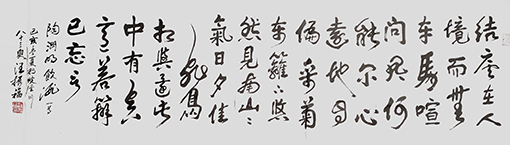 結廬在人
境而無
車馬喧
問君何
能尔心
遠地自
偏采菊
東籬下悠
然見南山山
氣日夕佳
飛鳥
相與還此
中有真
意欲辯
已忘言
陶淵明飲酒一首
己亥
八十三叟